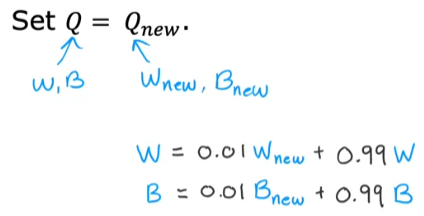 Set Q = Qnew.
W, B Wnew, Bnew
W = 0.01 Wnew + 0.99 W
B = 0.01 Bnew + 0.99 B